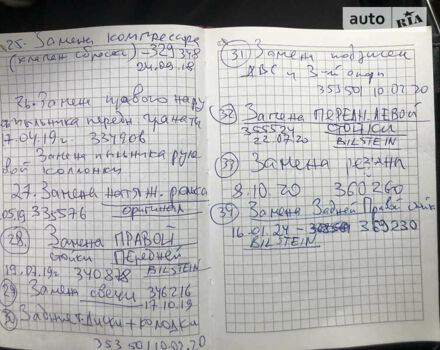 25. Замена компрессора
(клапен сброса) - 329348
24.09.18
26. Замен правого нару
пыльника передн гранаты
17.04.19г 334906
Замена пыльника руле
вой колонки
27. Замена натяж. ролика
оригинал
05.19 335576
28. Замена ПРАВОЙ
стойки Передней
19.07.19г. 340878 BILSTEIN
29 Замена свечи 346216
17.10.19
30 Задние диски + колодки
35350 | 10.02.20
31 Замен подушек
ДВС и 3-й опор
35350 10.02.20
32 Замена ПЕРЕДН. ЛЕВОЙ
355524 СТОЙКИ
22.07.20 BILSTEIN
33 Замена резины
8.10.20 360260
34 Замена Задней Правой стойки
16.01.24 - 369230
BILSTEIN
auto RIA